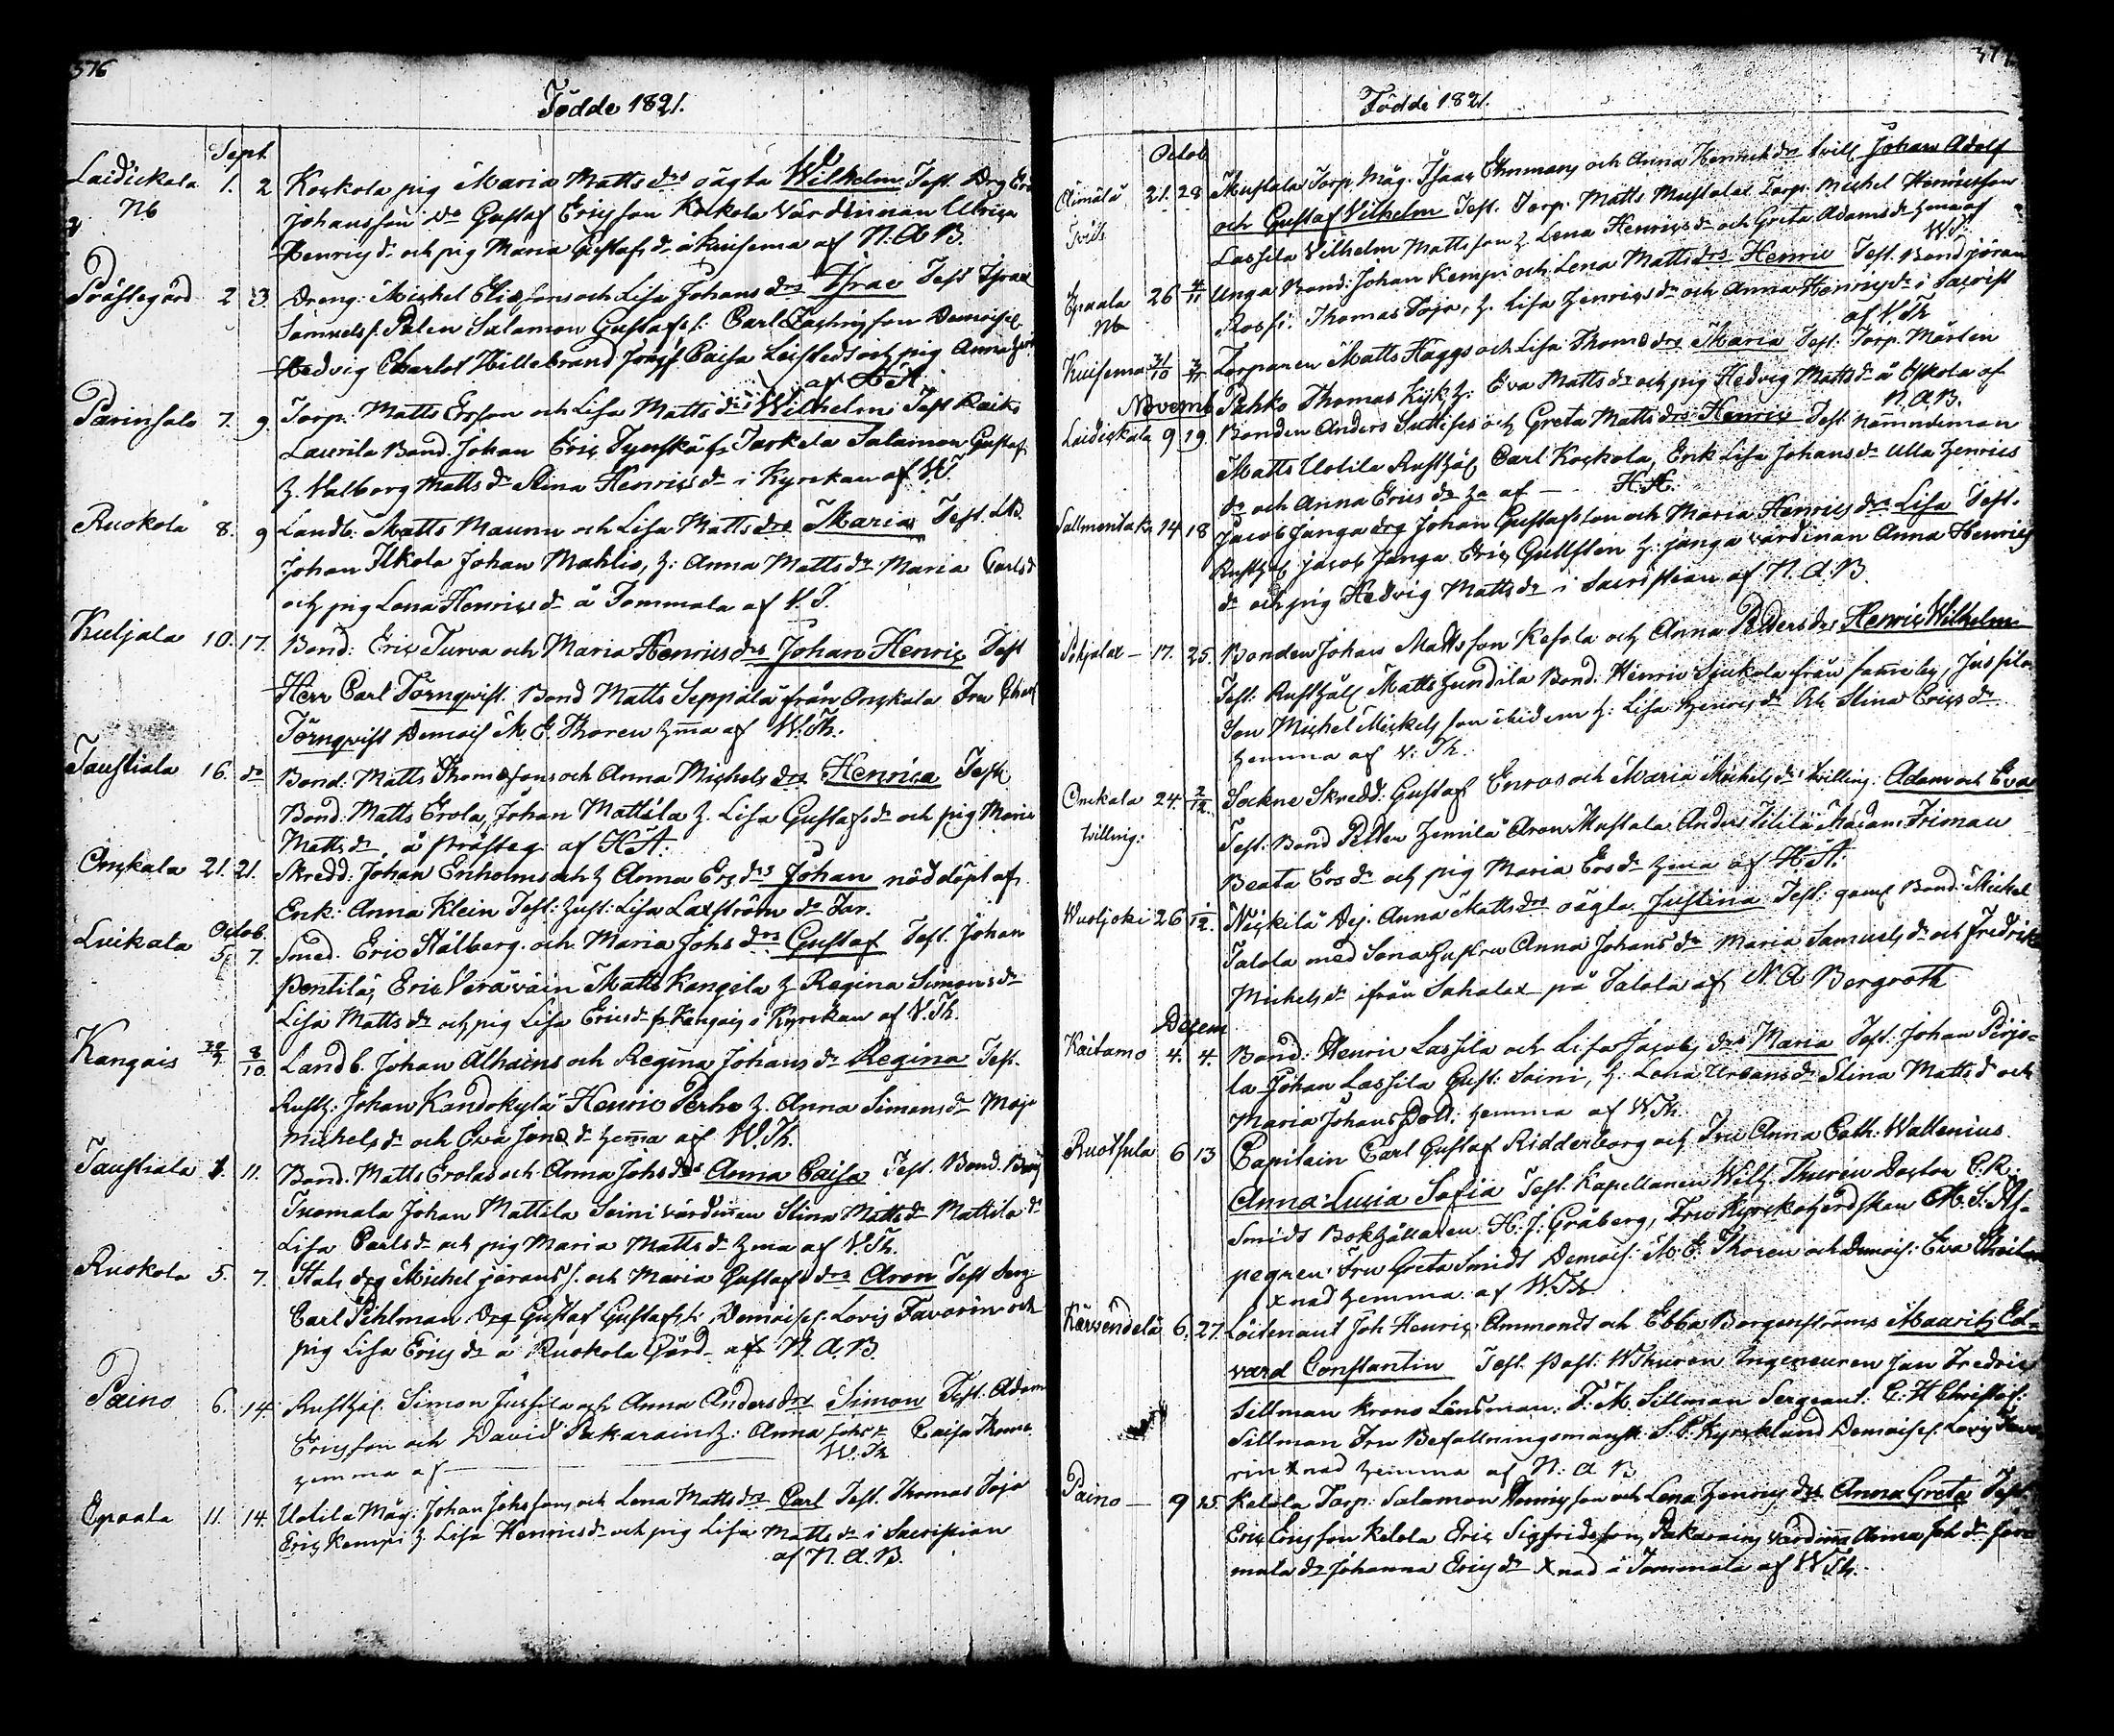 376
Födde 1821.
Sept
Laidickala 1. 2 Koskola pig Maria Matts drs oägta Wilhelm Test. Drg
Nb Johansson Do Gustaf Ericsson Kockola Värdinnan Ulrica
Henrics dr och pig Maria Gustafs dr å Kuisema af N. A. B.
Prästegård 2 3 Dreng: Michel Eliæsons och Lisa Johans drs Israe Test Israel
Samuels s. Palen Salamon Gustafs s: Carl Zachrisson Demoisel
Hedvig Charlot Hillebrand Caisa och pig Anna
af H A.
Parinsalo 7. 9 Torp. Matts Ersson och Lisa Matts drs Wilhelm Test Raiko
Laurila Bond. Johan Eric Tyrskä Jackela Salamon Gustaf
h. Valborg Matts dr Stina Henrics dr i Kyrckan af V. T.
Ruokola 8. 9 Landb. Matts Maunu och Lisa Matts drs Maria Test. LB.
Johan Ilkola Johan Mahlio, h: Anna Matts dr Maria Carls d
och pig Lena Henrics dr å Tommola af V. T.
Kuljala 10. 17. Bond: Eric Turva och Maria Henrics drs Johan Henric Test
Herr Carl Törnqvist. Bond Matts Seppälä från Onckala Fru
Törnqvist Demois M. E. Thoren hma af W. Th.
Taustiala 16. do Bond: Matts Thomæsons och Anna Michels drs Henrica Test
Bond: Matts Erola, Johan Mattila h. Lisa Gustafs dr och pig Maria
Matts dr å Prästeg. af H A.
Onckala 21. 21. Skredd: Johan Enholms och h Anna Ers drs Johan nöddöpt af
Enk: Anna Klein Test: hust: Lisa Laxström dr
Octob.
Luikala 5 7. Smed. Eric Stålberg och Maria Johs drs Gustaf Test. Johan
Pentilä, Eric Veräväin Matts Kangila h Regina Simons dr
Lisa Matts dr och pig Lisa Erics dr fr Kangais i Kyrckan af V. Th.
Kangais 30/9 8/10 Landb. Johan Alhains och Regina Johans dr Regina Test.
Rusth: Johan Kandokylä Henric Perho h. Anna Simons dr
Michels dr och Eva Jons dr hemma af W. Th.
Taustiala 1. 11. Bond. Matts Erolas och Anna Johs drs Anna Caisa Test. Bond.
Tuomala Johan Mattila Soini värdinnan Stina Matts dr Mattila dr
Lisa Carls dr och pig Maria Matts dr hma af V. Th.
Ruokola 5. 7. Stat drg Michel Jörans s. och Maria Gustafs drs Aron Test Serg
Carl Pihlman drg Gustaf Gustafs s. Demoisel. Lovis Favorin och
pig Lisa Erics dr å Ruokola Gård af N. A. B.
Paino 6. 14. Rusthål. Simon Jussila och Anna Anders drs Simon Test: Adam
Ericsson och David Pakarain h: Anna Johs dr Caisa Thomæ
hemma af W. Th
Epaala 11. 14. Uotila Måg: Johan Johssons och Lena Matts drs Carl Test. Thomas Tojo
Eric Kempi h Lisa Henrics dr och pig Lisa Matts dr i Sacristian
af N. A. B.
377
Födde 1821.
Octob
Äimälä 21. 28 Mustala Torp. Måg. Isaac Ehnmans och Anna Henrics drs tvill. Johan Adolf
Tvill och Gustaf Wilhelm Test. Torp. Matts Mustala Torp. Michel Henricsson
Lassila Vilhelm Mattsson h. Lena Henrics dr och Greta Adams dr hema af
W T.
Epaala 26 4/11 Unga Bond: Johan Kempi och Lena Matts drs Henric Test. Bond Jöran
Nb Rossi. Thomas Tojo, h. Lisa Henrics dr och Anna Henrics dr i Sacrist
af V. Th
Kuisema 31/10 3/11 Torparen Matts Haggs och Lisa Thomæ drs Maria Test. Torp. Mårten
Pahko Thomas h: Eva Matts dr och pig Hedvig Matts dr å af
N. A. B.
Novemb
Laidickala 9 19. Bonden Anders Suttiss och Greta Matts drs Henric Test Nämndeman
Matts Uotila Rusthål Carl Kockola, Enk Lisa Johans dr Ulla Henrics
dr och Anna Erics dr ha af — H. A.
Salmentaka 14 18 Jacob Janga drg Johan Gustafsson och Maria Henrics drs Lisa Test.
Rusthål Jacob Janga Eric Gullsten h. Janga värdinnan Anna Henrics
dr och pig Hedvig Matts dr i Sacristian af N. A. B.
Pohjala — 17. 25. Bonden Johan Mattsson Kesola och Anna Petters drs Henric Wilhelm
Test: Rusthål Matts Hundila Bond. Henric Sjukola från samma by, Jussila
Son Michel Michelsson ibidem h: Lisa Henrics dr Stina Erics dr
hemma af V: Th.
Onckala 24. 2/12. Sockne Skredd: Gustaf Enros och Maria Michels drs tvilling. Adam och Eva
tvilling: Test: Bond Petter Hemilä Aron Mustala Anders Tilila Madam Friman
Beata Ers dr och pig Maria Ers dr hma af H. A.
Wuoljoki 26 1/12. Nickilä Pij. Anna Matts drs oägta Justina Test: gaml Bond: Michel
Talola med Sona hustru Anna Johans dr Maria Samuels dr och Fredrika
Michels dr ifrån Sahalax på Talola af N. A Bergroth
Decem
Kaitamo 4. 4. Bond: Henric Lassila och Lisa Jacobs drs Maria Test. Johan Pirjo-
la Johan Lassila Gust: Soini, h. Lena Urbans dr Stina Matts dr och
Maria Johans Dott: hemma af W. Th.
Ruotsula 6 13 Capitain Carl Gustaf Ridderborg och Fru Anna Cath: Wallenius
Anna Lucia Sofia Test. Kapellanen Wilh. Thurén Doctor C. R.
Smidt Bokhållaren H. J. Gråberg, Fru Kyrckoherdskan M. S. As-
pegren Fru Greta Smidt Demois: M. E. Thoren och Demois: Eva
xnad hemma af W. Th
Kärwendelä 6. 27. Löitenant Joh Henric Ammondt och Ebba Borgenströms Mauritz Ed-
vard Constantin Test. Past: W Thuren Ingeneuren Jan Fredric
Sillman Krono Länsman: F. M. Sillman Sergeant: C. H Christof:
Sillman Fru Befallningsmansk: S. C. Kyrcklund Demoisel. Lovis Favo
rin xnad hemma af N: A. B
Paino — 9 25. Kelola Torp: Salamon Henricsson och Lena Henrics drs Anna Greta Test
Eric Ericsson Kelola Eric Sigfridsson Pakarain värdinn Anna Joh dr
mala dr Johanna Erics dr xnad å Tommola af W Th.